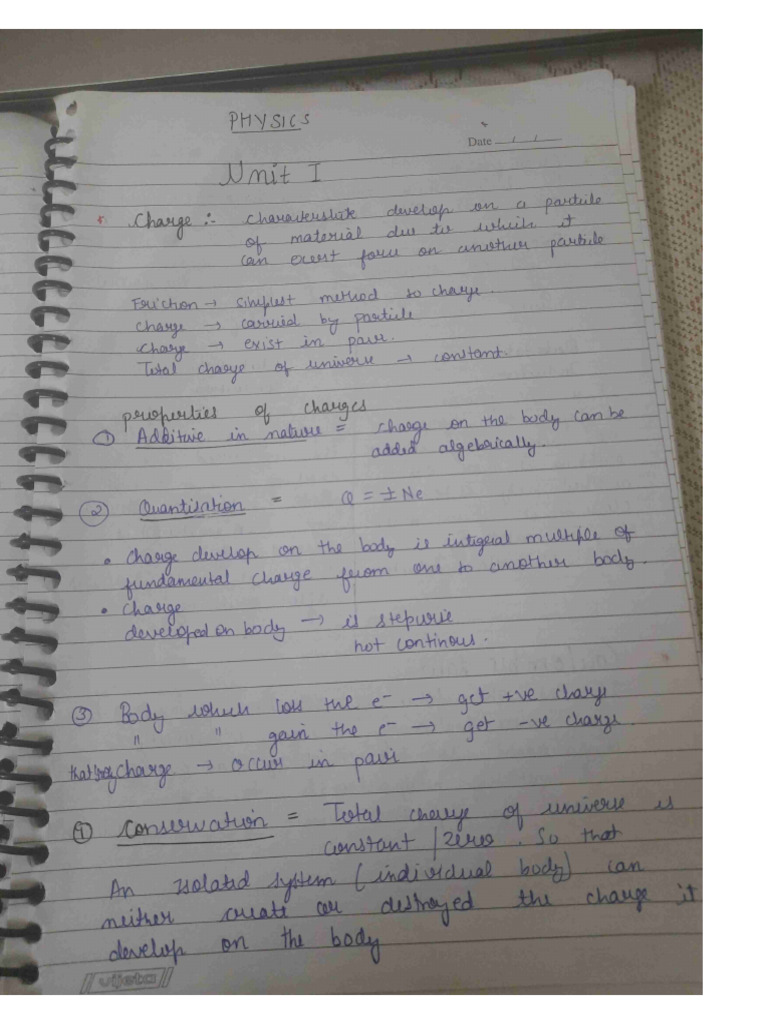 PHYSICS
Date
Unit I
* Charge :- characteristic develop on a particle
of material due to which it
can exert force on another particle
Friction → simplest method to charge.
Charge → carried by particle
Charge → exist in pair.
Total charge of universe → constant.
properties of charges
① Additive in nature = charge on the body can be
added algebrically.
② Quantisation = Q = ± Ne
• Charge develop on the body is intigeral multiple of
fundamental charge from one to another body.
• Charge
developed on body → is stepwise
not continous.
③ Body which loss the e⁻ → get +ve charge
" " gain the e⁻ → get -ve charge.
charge → occur in pair
④ Conservation = Total charge of universe is
constant / zero. So that
An isolated system (individual body) can
neither create or destroyed the charge it
develop on the body
vijeta